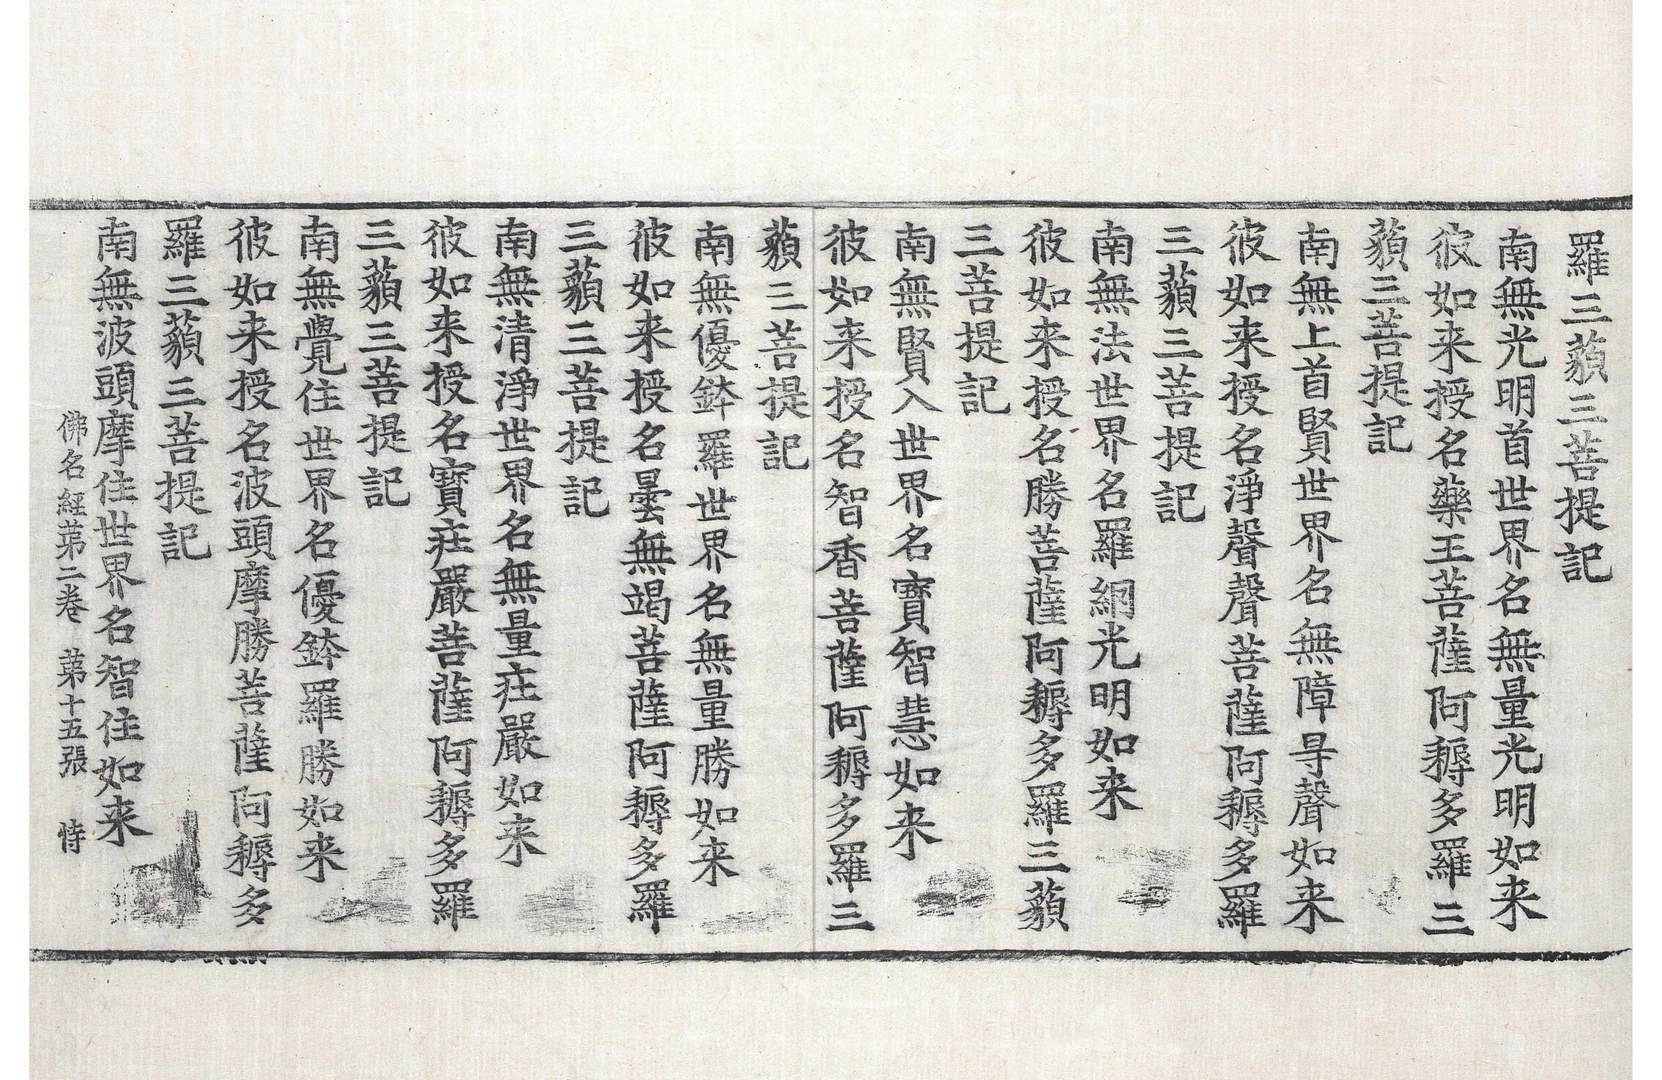 羅三藐三菩提記
南無光明首世界名無量光明如来
彼如来授名藥王菩薩阿耨多羅三
藐三菩提記
南無上首賢世界名無障㝵聲如来
彼如来授名淨聲聲菩薩阿耨多羅
三藐三菩提記
南無法世界名羅網光明如来
彼如来授名勝菩薩阿耨多羅三藐
三菩提記
南無賢入世界名寶智慧如来
彼如来授名智香菩薩阿耨多羅三
藐三菩提記
南無優鉢羅世界名無量勝如来
彼如来授名曇無竭菩薩阿耨多羅
三藐三菩提記
南無清淨世界名無量疘嚴如来
彼如来授名寶疘嚴菩薩阿耨多羅
三藐三菩提記
南無覺住世界名優鉢羅勝如来
彼如来授名波頭摩勝菩薩阿耨多
羅三藐三菩提記
南無波頭摩住世界名智住如来
佛名經苐二卷 苐十五張 恃